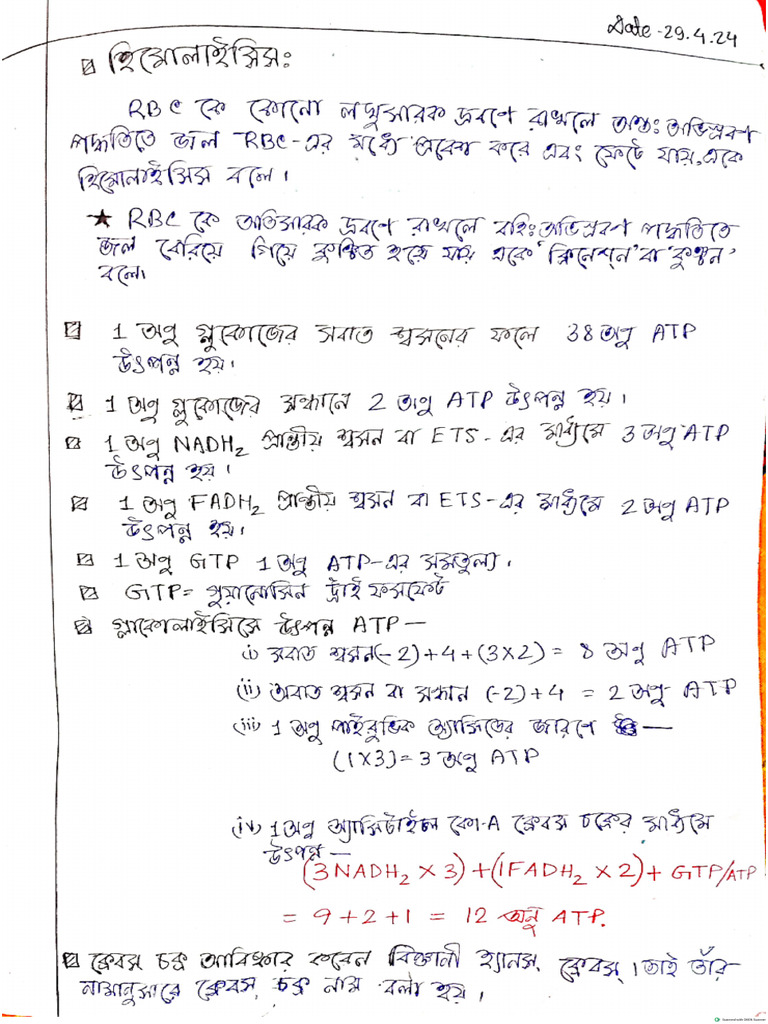 Date - 29.4.24
হিমোলাইসিস:
RBC কে কোনো লঘুসারক দ্রবণে রাখলে অন্তঃ অভিস্রবণ
পদ্ধতিতে জল RBC-এর মধ্যে প্রবেশ করে এবং ফেটে যায়, একে
হিমোলাইসিস বলে।
★ RBC কে অতিসারক দ্রবণে রাখলে বহিঃঅভিস্রবণ পদ্ধতিতে
জল বেরিয়ে গিয়ে কুঞ্চিত হয়ে যায় একে 'ক্রিনেশন' বা 'কুঞ্চন'
বলে।
1 অণু গ্লুকোজের সবাত শ্বসনের ফলে 38 অণু ATP
উৎপন্ন হয়।
1 অণু গ্লুকোজের সন্ধানে 2 অণু ATP উৎপন্ন হয়।
1 অণু NADH₂ প্রান্তীয় শ্বসন বা ETS-এর মাধ্যমে 3 অণু ATP
উৎপন্ন হয়।
1 অণু FADH₂ প্রান্তীয় শ্বসন বা ETS-এর মাধ্যমে 2 অণু ATP
উৎপন্ন হয়।
1 অণু GTP 1 অণু ATP-এর সমতুল্য।
GTP = গুয়ানোসিন ট্রাই ফসফেট
গ্লাকোলাইসিসে উৎপন্ন ATP—
i) সবাত শ্বসন (-2)+4+(3×2) = 8 অণু ATP
(ii) অবাত শ্বসন বা সন্ধান (-2)+4 = 2 অণু ATP
(iii) 1 অণু পাইরুভিক অ্যাসিডের জারণে —
(1×3) = 3 অণু ATP
(iv) 1 অণু অ্যাসিটাইল কো-A ক্রেবস চক্রের মাধ্যমে
উৎপন্ন —
(3NADH₂ × 3) + (1FADH₂ × 2) + GTP/ATP
= 9+2+1 = 12 অনু ATP.
ক্রেবস চক্র আবিষ্কার করেন বিজ্ঞানী হ্যানস ক্রেবস্। তাই তাঁর
নামানুসারে ক্রেবস চক্র নাম বলা হয়।